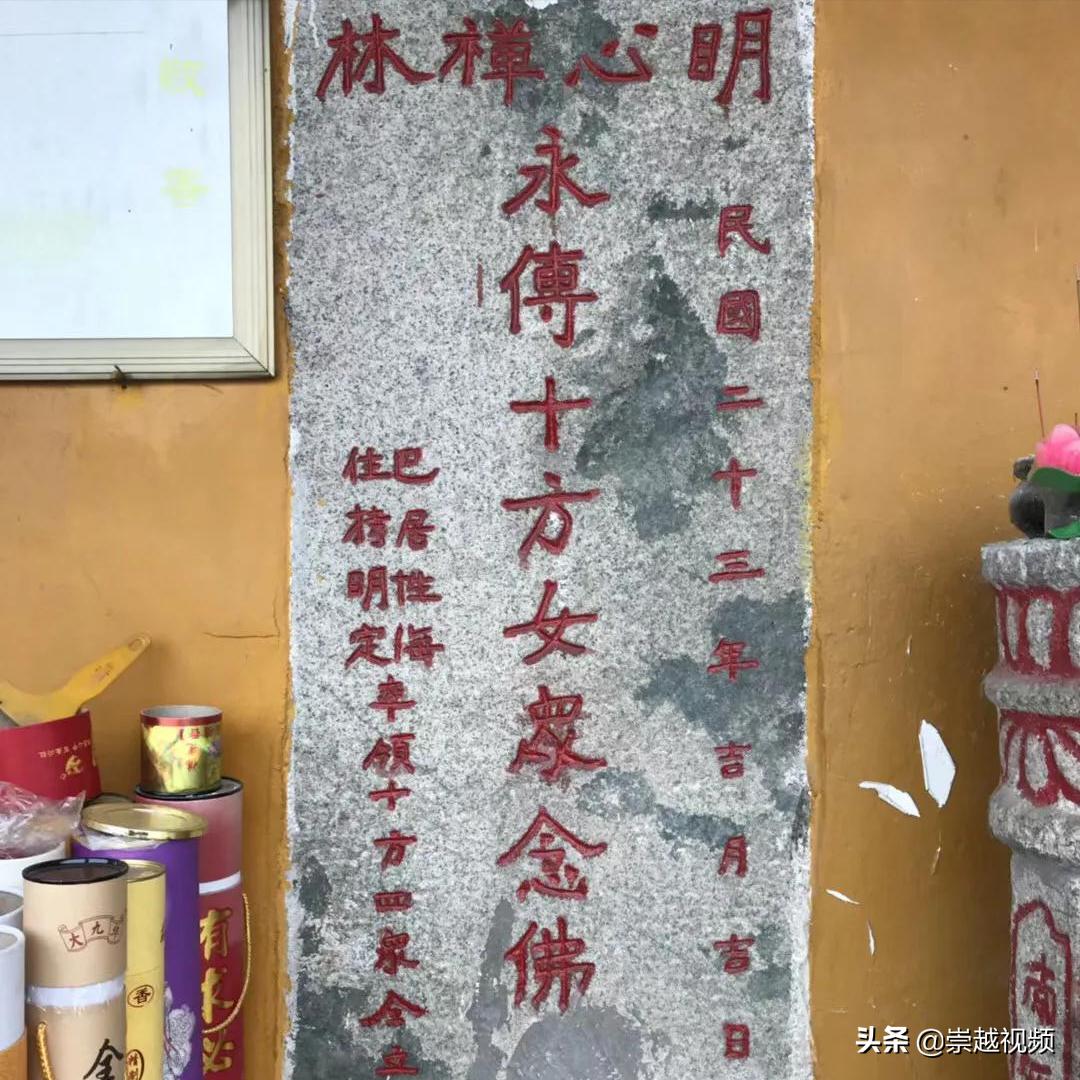 明心禪林
民國二十三年吉月吉日
永傳十方女眾念佛
巴居性海
住持明定
率領十方四眾仝立
大九华
香
有求必
南
头条 @崇越视频